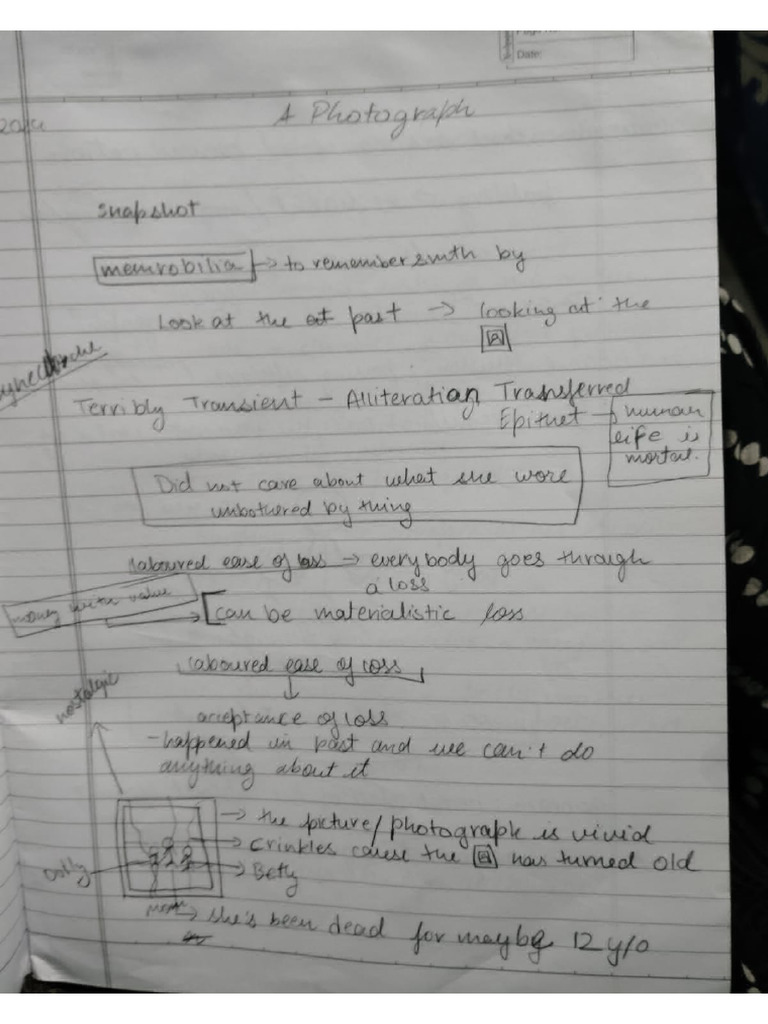 Date:
A Photograph
snapshot
memrobilia → to remember smth by
Look at the past → looking at the
Terribly Transient - Alliteration, Transferred
Epithet → human
life is
mortal.
Did not care about what she wore
unbothered by thing
laboured ease of loss → everybody goes through
a loss
money with value
can be materialistic loss
laboured ease of loss
↓
nostalgic
acceptance of loss
- happened in past and we can't do
anything about it
→ the picture/photograph is vivid
→ Crinkles cause the has turned old
Dolly
→ Betty
mom → she's been dead for maybe 12 y/o